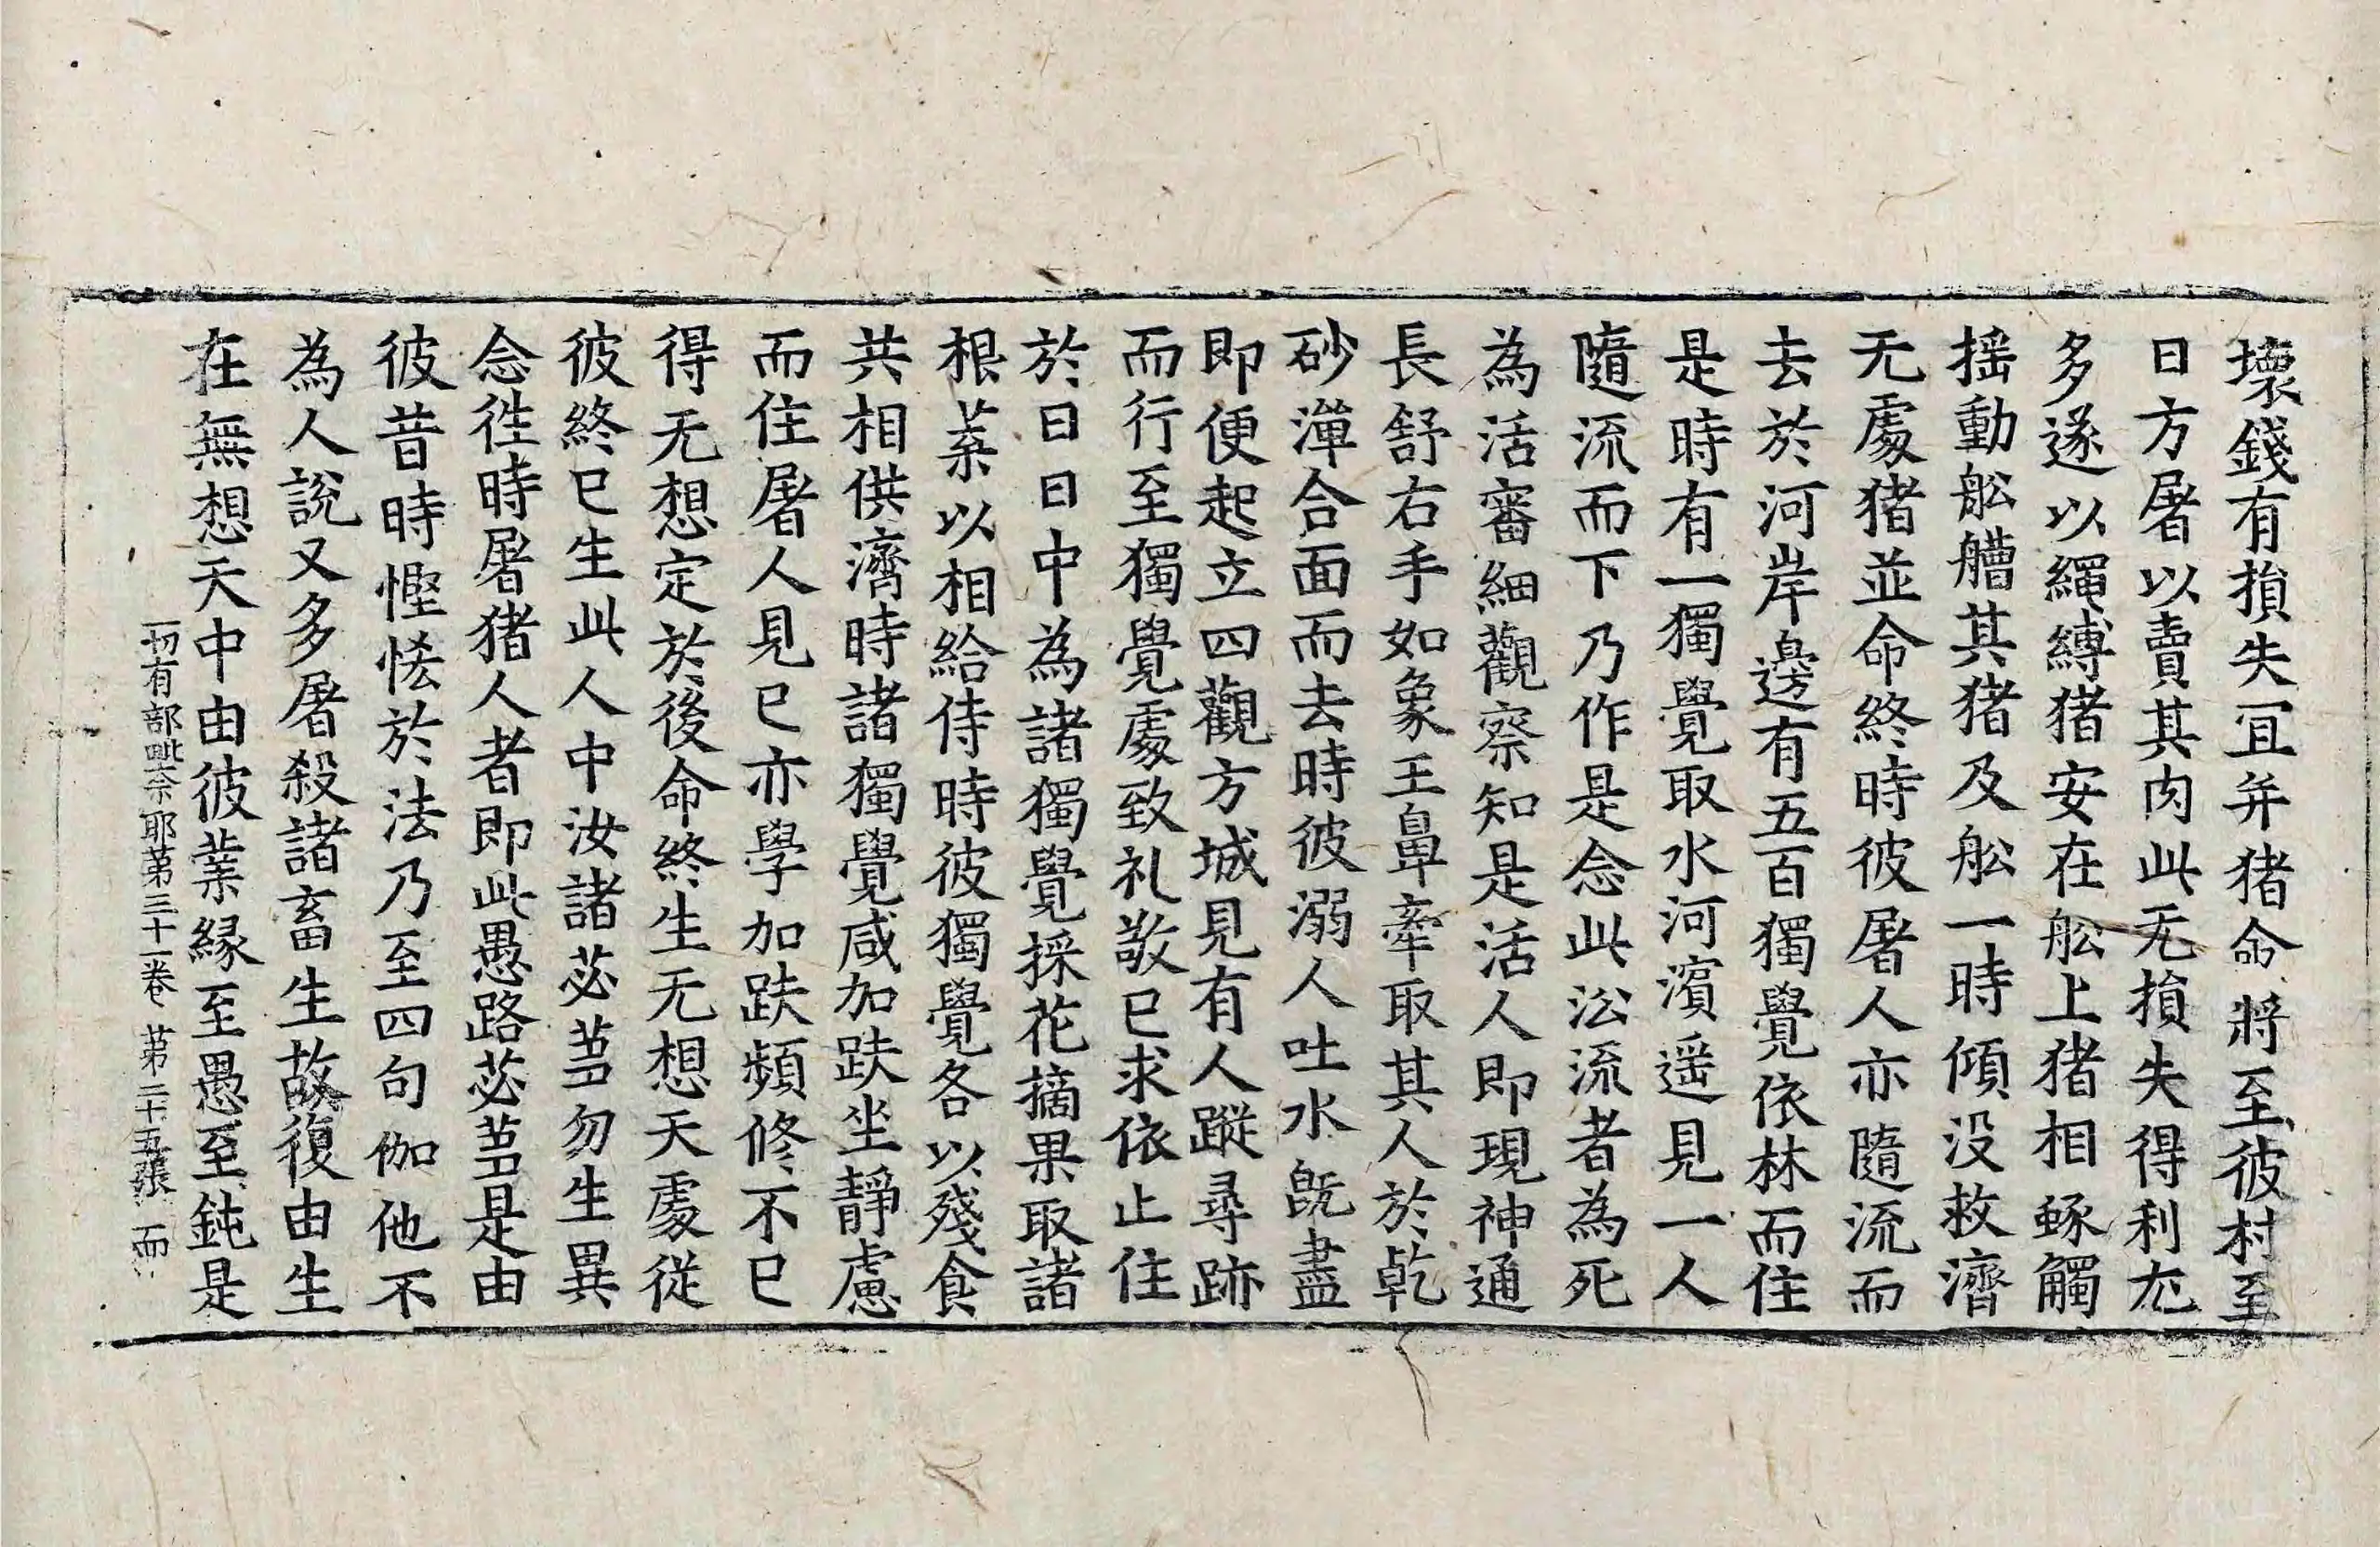 壞錢有損失冝弁猪命將至彼村至
日方屠以賣其肉此无損失得利尤
多遂以繩縛猪安在舩上猪相𧱓觸
揺動舩艚其猪及舩一時傾没救濟
无處猪並命終時彼屠人亦隨流而
去於河岸邊有五百獨覺依林而住
是時有一獨覺取水河濱遥見一人
隨流而下乃作是念此㳂流者為死
為活審細觀察知是活人即現神通
長舒右手如象王鼻牽取其人於乾
砂潬合面而去時彼溺人吐水旣盡
即便起立四觀方城見有人蹤尋跡
而行至獨覺處致礼敬已求依止住
於日日中為諸獨覺採花摘果取諸
根葉以相給侍時彼獨覺各以殘食
共相供濟時諸獨覺咸加趺坐靜慮
而住屠人見已亦學加趺頻修不已
得无想定於後命終生无想天處從
彼終已生此人中汝諸苾芻勿生異
念徃時屠猪人者即此愚路苾芻是由
彼昔時慳悋於法乃至四句伽他不
為人說又多屠殺諸畜生故復由生
在無想天中由彼業縁至愚至鈍是
一切有部毗奈耶第三十一卷 第二十五張 而